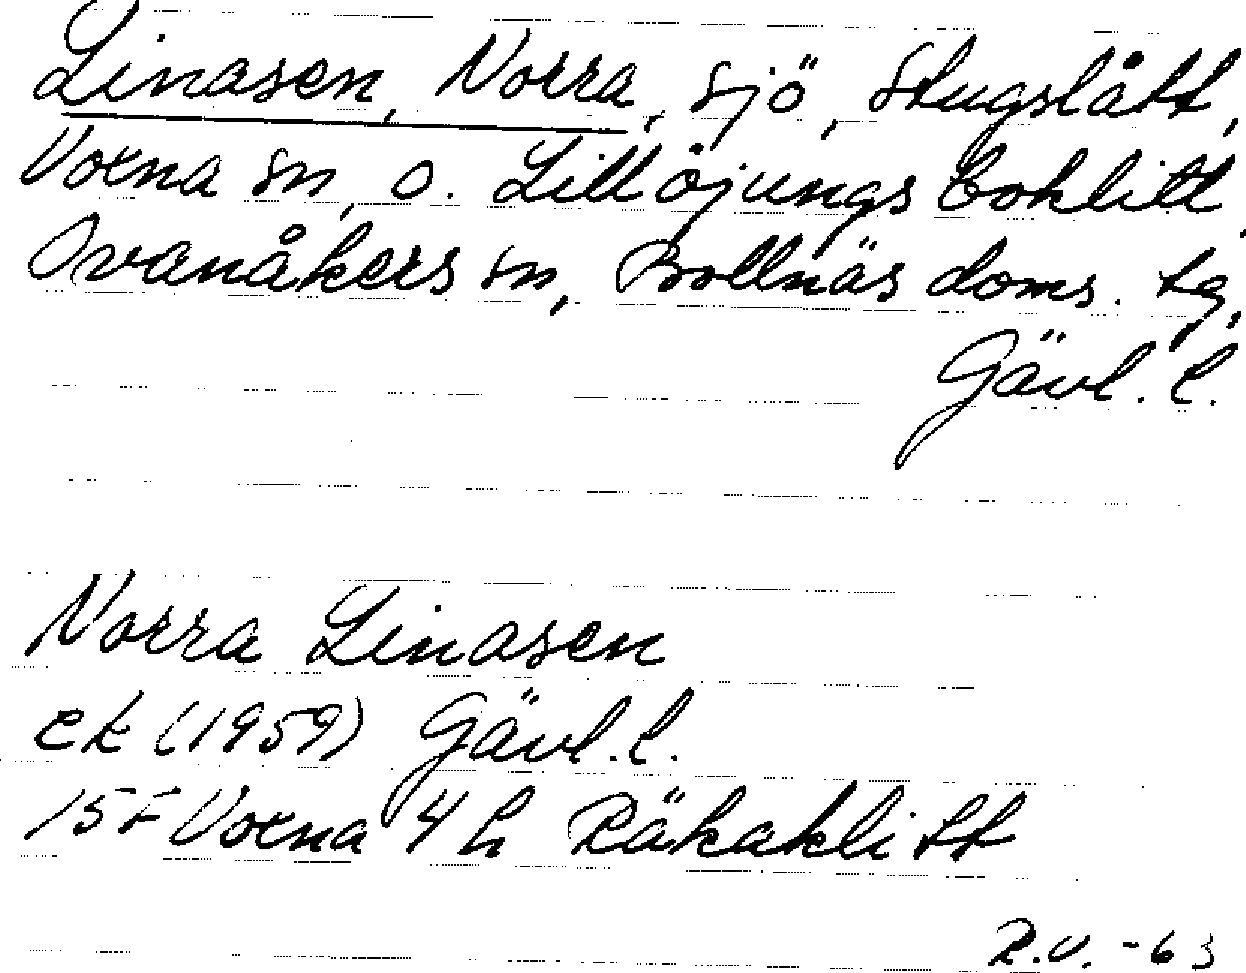 Linasen, Norra, sjö, Stugslått,
Voxna sn, o. Lillöjungs boklitt
Ovanåkers sn, Bollnäs doms. tg,
Gävl. l.
Norra Linasen
ek (1959) Gävl. l.
15F Voxna 4 h Räkaklitt
R.V. -63